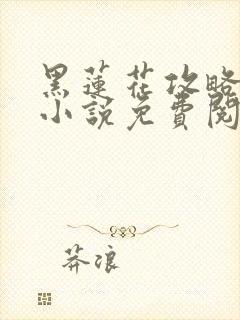 黑蓮花攻略
小說免費閱
莽浪